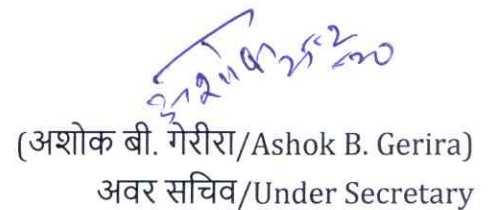 (अशोक बी. गेरीरा/Ashok B. Gerira)
अवर सचिव/Under Secretary